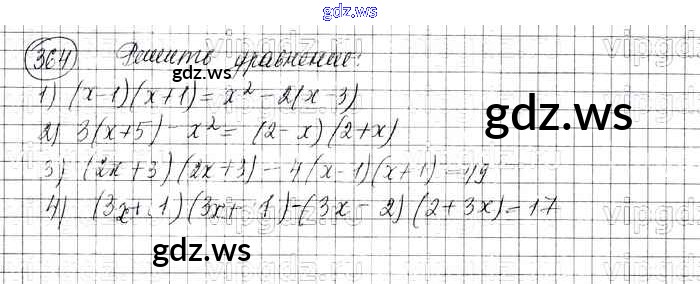 gdz.ws
364 Решить уравнение:
gdz.ws
1) (x-1)(x+1) = x² - 2(x-3)
2) 3(x+5) - x² = (2-x)(2+x)
3) (2x+3)(2x+3) - 4(x-1)(x+1) = 49
4) (3x+1)(3x+1) - (3x-2)(2+3x) = 17
gdz.ws
gdz.ws
gdz.ws